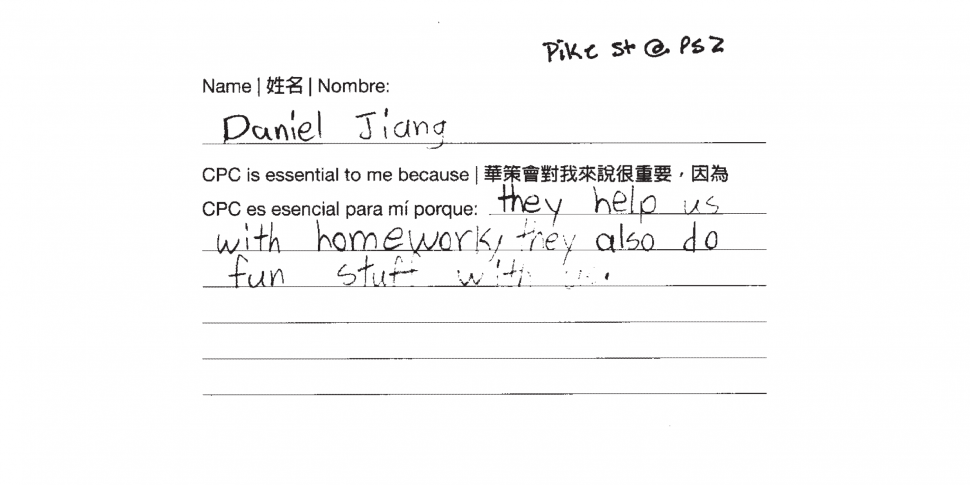 Pike St @ PS2
Name | 姓名 | Nombre:
Daniel Jiang
CPC is essential to me because | 華策會對我來說很重要，因為
CPC es esencial para mí porque: they help us
with homework, they also do
fun stuff with us.